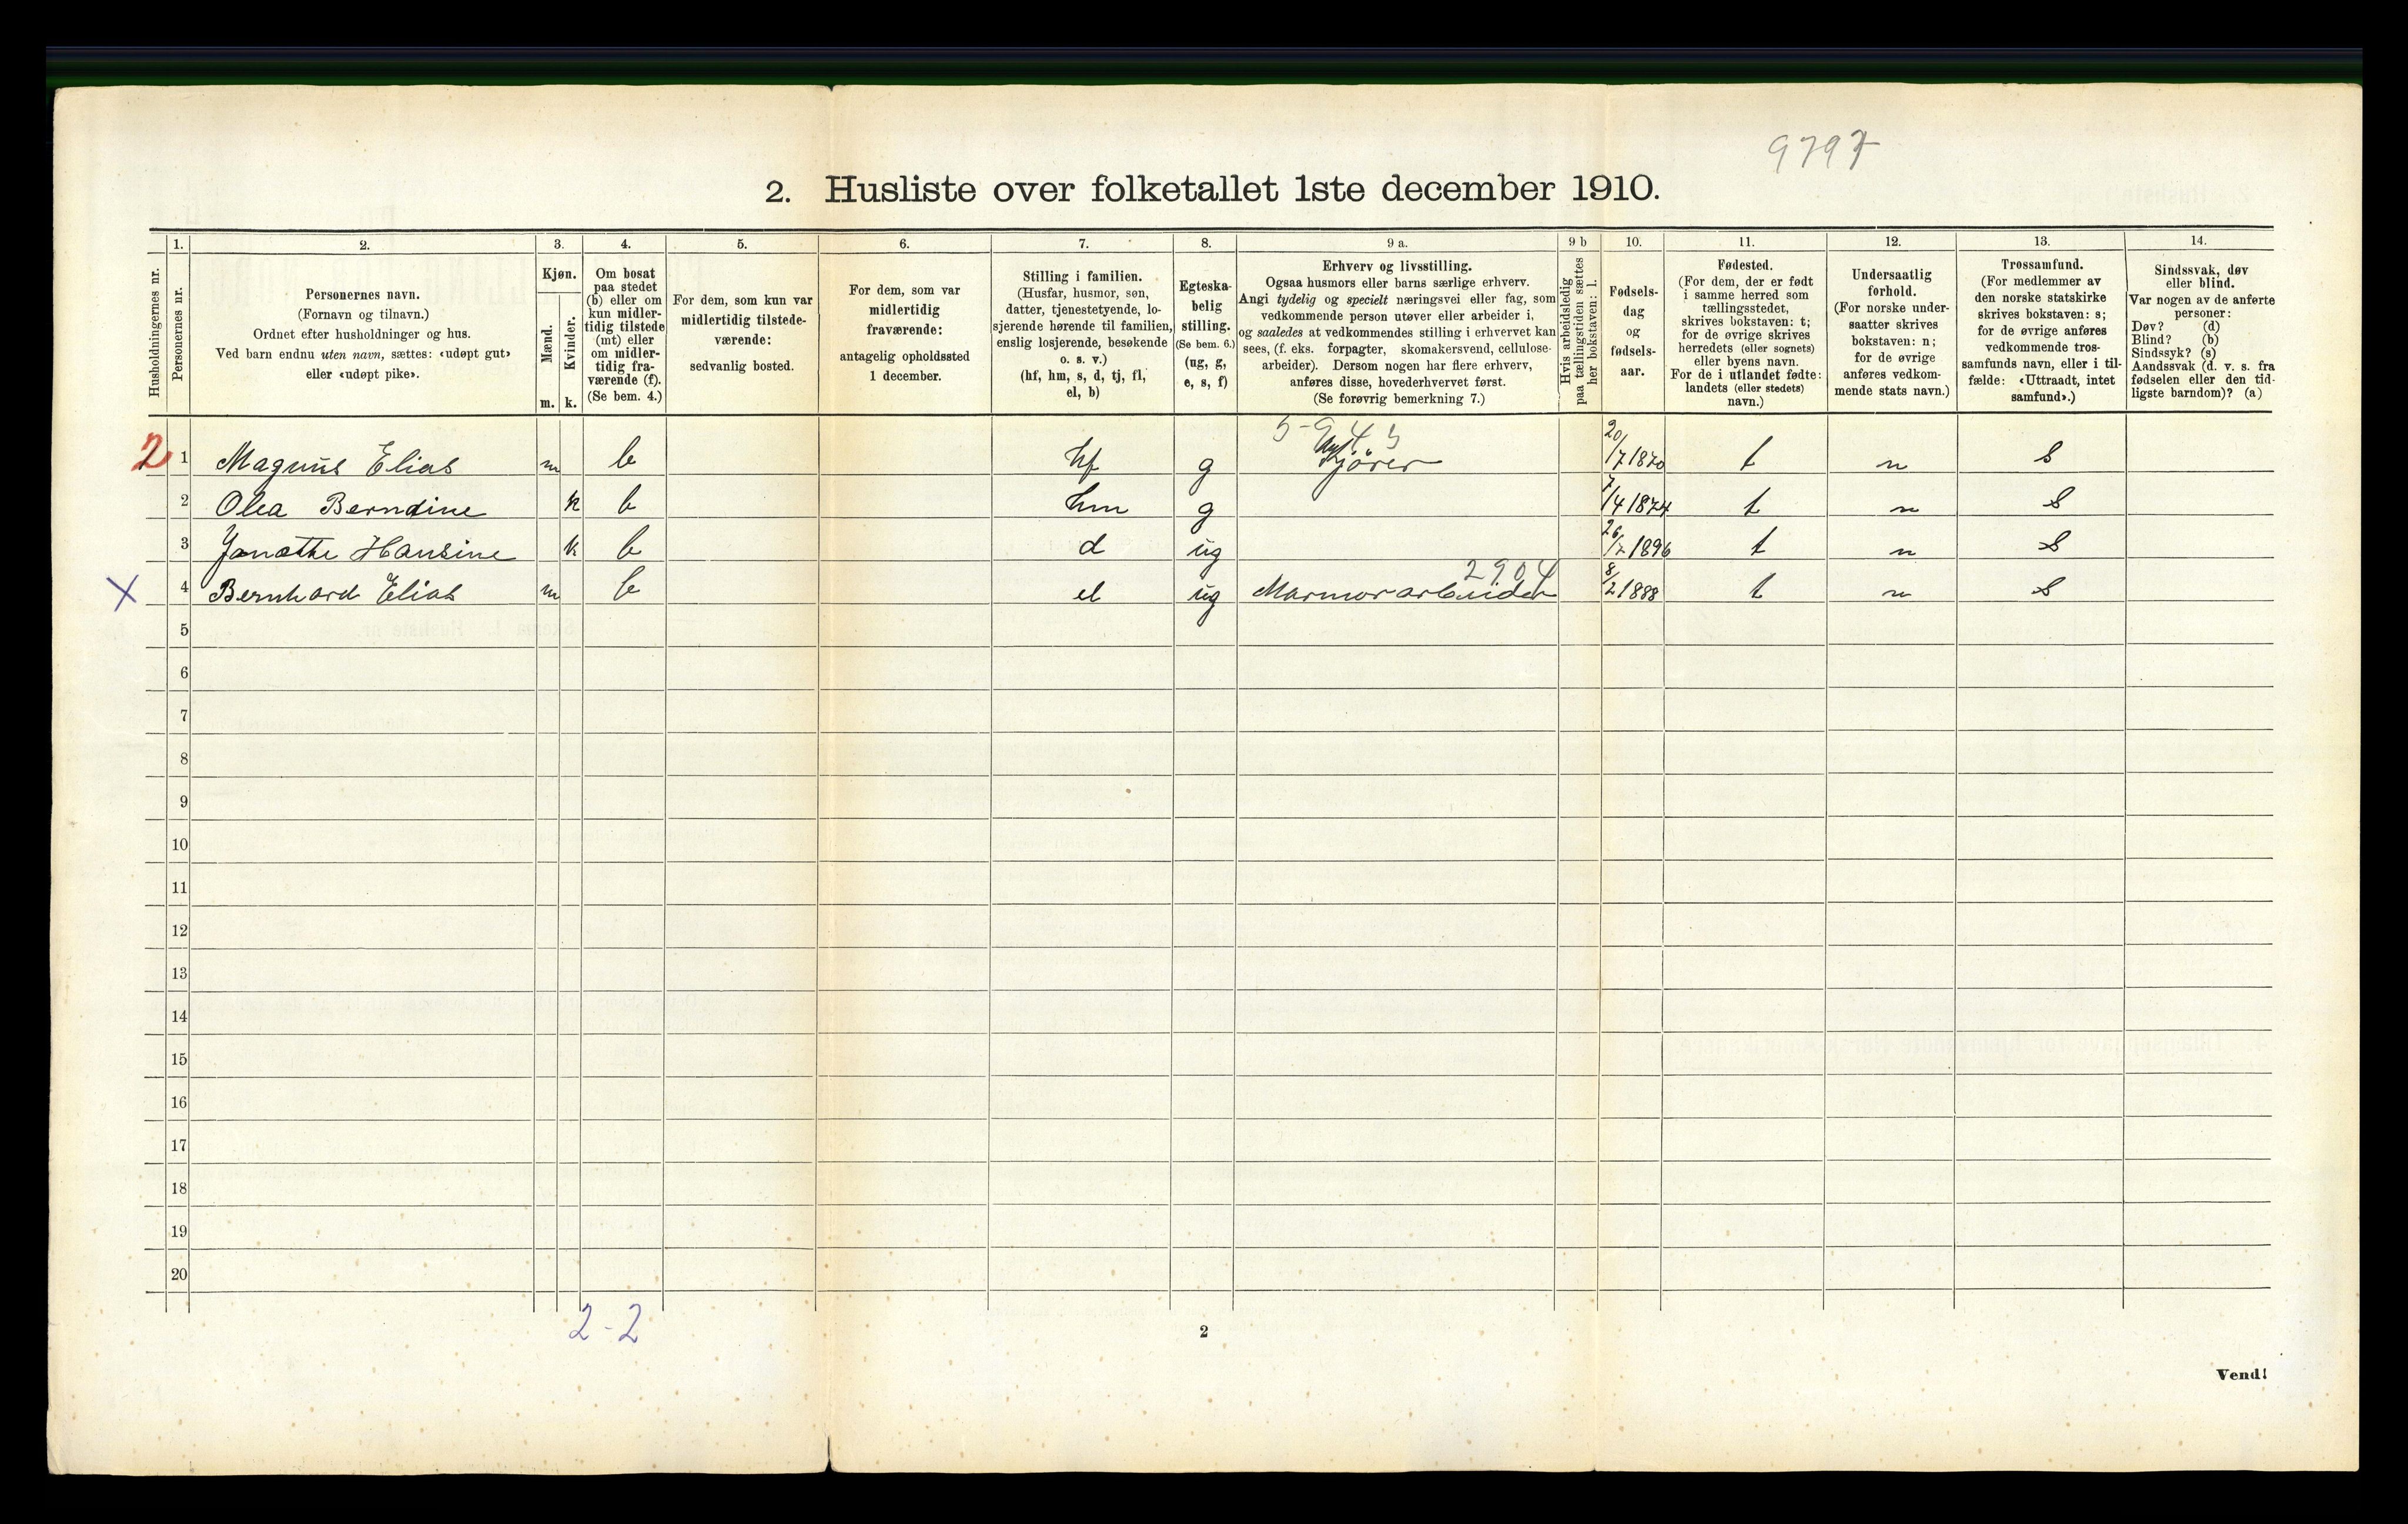 9797
2. Husliste over folketallet 1ste december 1910.
Husholdningernes nr.
1.
Personernes nr.
2.
Personernes navn.
(Fornavn og tilnavn.)
Ordnet efter husholdninger og hus.
Ved barn endnu uten navn, sættes: «udøpt gut»
eller «udøpt pike».
3.
Kjøn.
Mænd.
Kvinder.
m. k.
4.
Om bosat
paa stedet
(b) eller om
kun midler-
tidig tilstede
(mt) eller
om midler-
tidig fra-
værende (f).
(Se bem. 4.)
5.
For dem, som kun var
midlertidig tilstede-
værende:
sedvanlig bosted.
6.
For dem, som var
midlertidig
fraværende:
antagelig opholdssted
1 december.
7.
Stilling i familien.
(Husfar, husmor, søn,
datter, tjenestetyende, lo-
sjerende hørende til familien,
enslig losjerende, besøkende
o. s. v.)
(hf, hm, s, d, tj, fl,
el, b)
8.
Egteska-
belig
stilling.
(Se bem. 6.)
(ug, g,
e, s, f)
9 a.
Erhverv og livsstilling.
Ogsaa husmors eller barns særlige erhverv.
Angi tydelig og specielt næringsvei eller fag, som
vedkommende person utøver eller arbeider i,
og saaledes at vedkommendes stilling i erhvervet kan
sees, (f. eks. forpagter, skomakersvend, cellulose-
arbeider). Dersom nogen har flere erhverv,
anføres disse, hovederhvervet først.
(Se forøvrig bemerkning 7.)
9 b
Hvis arbeidsledig
paa tællingstiden sættes
her bokstaven: l.
10.
Fødsels-
dag
og
fødsels-
aar.
11.
Fødested.
(For dem, der er født
i samme herred som
tællingsstedet,
skrives bokstaven: t;
for de øvrige skrives
herredets (eller sognets)
eller byens navn.
For de i utlandet fødte:
landets (eller stedets)
navn.)
12.
Undersaatlig
forhold.
(For norske under-
saatter skrives
bokstaven: n;
for de øvrige
anføres vedkom-
mende stats navn.)
13.
Trossamfund.
(For medlemmer av
den norske statskirke
skrives bokstaven: s;
for de øvrige anføres
vedkommende tros-
samfunds navn, eller i til-
fælde: «Uttraadt, intet
samfund».)
14.
Sindssvak, døv
eller blind.
Var nogen av de anførte
personer:
Døv? (d)
Blind? (b)
Sindssyk? (s)
Aandssvak (d. v. s. fra
fødselen eller den tid-
ligste barndom)? (a)
2 1 Magnus Elias m b hf g kjører 20/7 1870 t n s
2 Olea Berndine k b hm g 7/4 1874 t n s
3 Janette Hansine k b d ug 1896 t n s
X 4 Bernhard Elias m b el ug 2904 Marmorarbeider 8/2 1888 t n s
5
6
7
8
9
10
11
12
13
14
15
16
17
18
19
20
2-2
2
Vend!